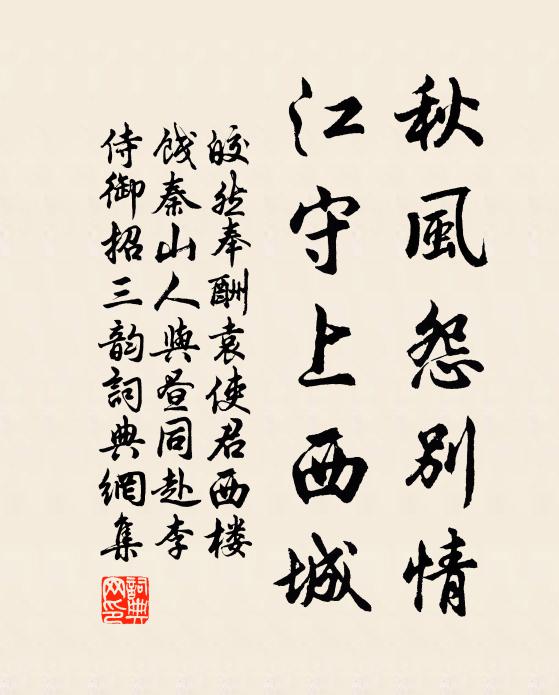 秋風怨別情
江守上西城
皎然奉酬袁使君西楼
餞秦山人與昼同赴李
侍御招三韵詞典網集
詞典網印